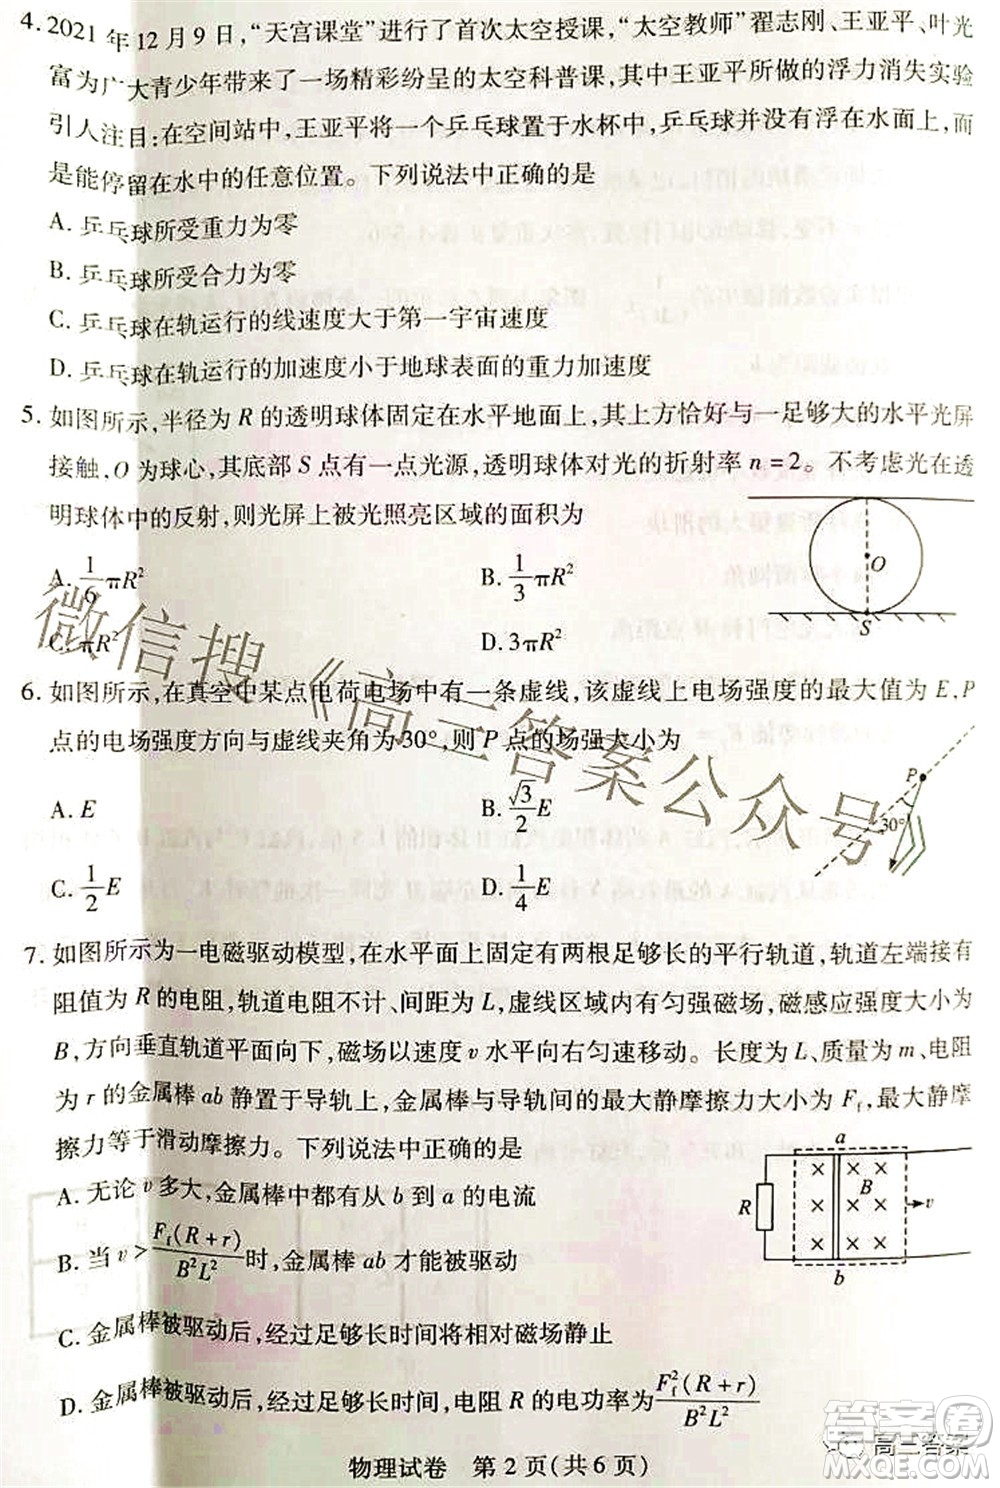 4. 2021 年 12 月 9 日,“天宫课堂”进行了首次太空授课,“太空教师”翟志刚、王亚平、叶光
富为广大青少年带来了一场精彩纷呈的太空科普课,其中王亚平所做的浮力消失实验
引人注目:在空间站中,王亚平将一个乒乓球置于水杯中,乒乓球并没有浮在水面上,而
是能停留在水中的任意位置。下列说法中正确的是
A. 乒乓球所受重力为零
B. 乒乓球所受合力为零
C. 乒乓球在轨运行的线速度大于第一宇宙速度
D. 乒乓球在轨运行的加速度小于地球表面的重力加速度
5. 如图所示,半径为 R 的透明球体固定在水平地面上,其上方恰好与一足够大的水平光屏
接触,O 为球心,其底部 S 点有一点光源,透明球体对光的折射率 n=2。不考虑光在透
明球体中的反射,则光屏上被光照亮区域的面积为
A. \frac{1}{6}πR²
B. \frac{1}{3}πR²
C. πR²
D. 3πR²
O
S
微信搜《高三答案公众号》
6. 如图所示,在真空中某点电荷电场中有一条虚线,该虚线上电场强度的最大值为 E,P
点的电场强度方向与虚线夹角为30°,则 P 点的场强大小为
A. E
B. \frac{\sqrt{3}}{2}E
C. \frac{1}{2}E
D. \frac{1}{4}E
P
30°
7. 如图所示为一电磁驱动模型,在水平面上固定有两根足够长的平行轨道,轨道左端接有
阻值为 R 的电阻,轨道电阻不计、间距为 L,虚线区域内有匀强磁场,磁感应强度大小为
B,方向垂直轨道平面向下,磁场以速度 v 水平向右匀速移动。长度为 L、质量为 m、电阻
为 r 的金属棒 ab 静置于导轨上,金属棒与导轨间的最大静摩擦力大小为 F_f,最大静摩
擦力等于滑动摩擦力。下列说法中正确的是
A. 无论 v 多大,金属棒中都有从 b 到 a 的电流
B. 当 v>\frac{F_f(R+r)}{B²L²}时,金属棒 ab 才能被驱动
C. 金属棒被驱动后,经过足够长时间将相对磁场静止
D. 金属棒被驱动后,经过足够长时间,电阻 R 的电功率为\frac{F_f²(R+r)}{B²L²}
a
R
B
v
b
物理试卷 第 2 页(共 6 页)
答案卷
高三答案